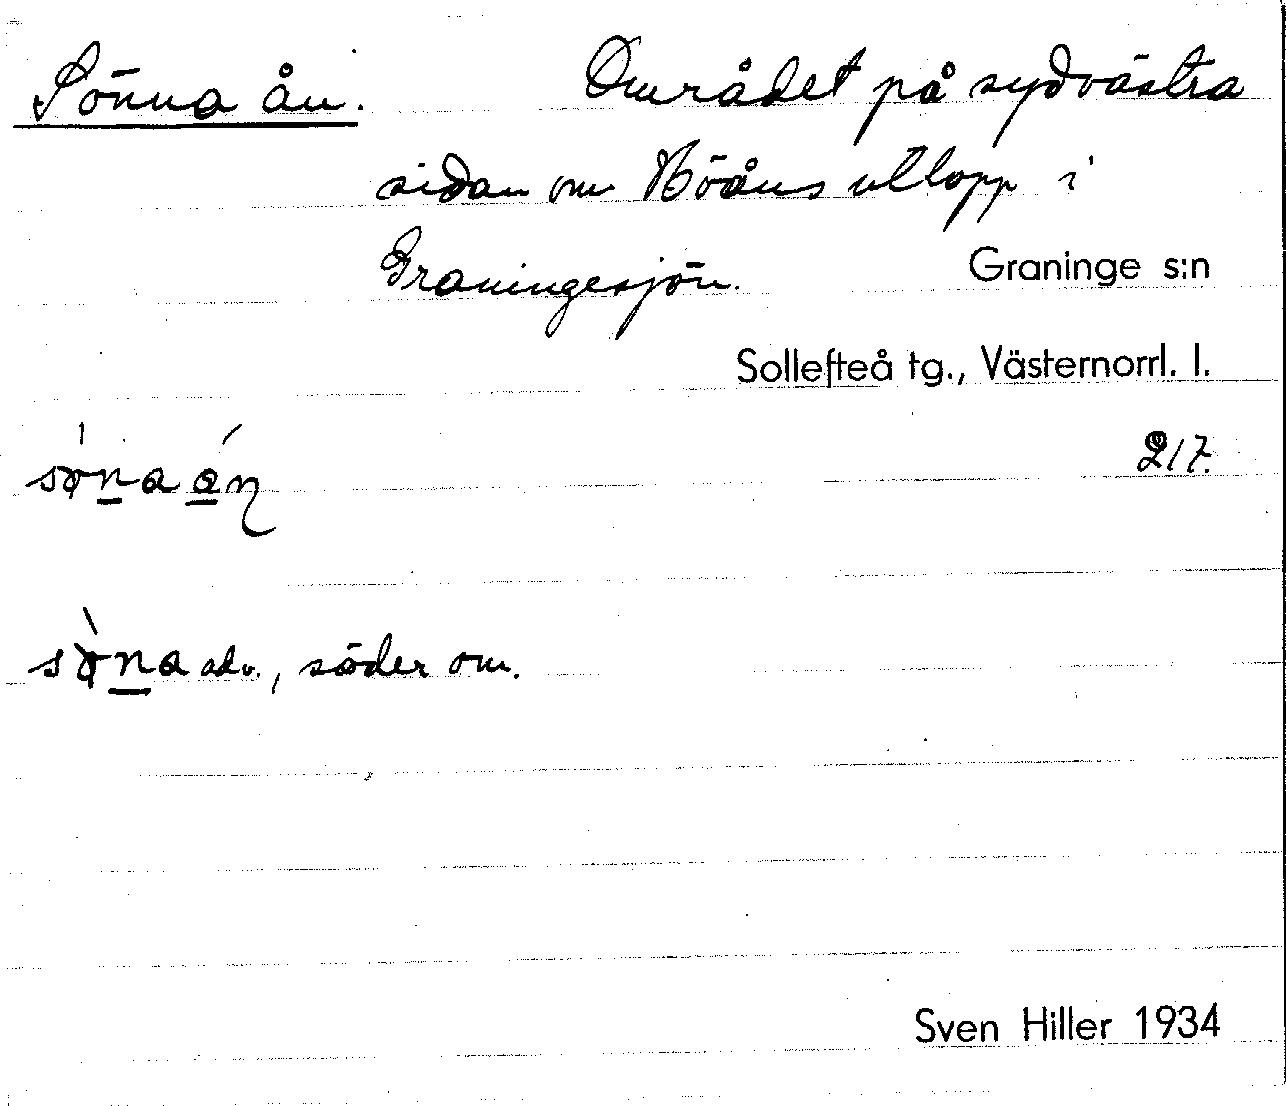 Sönna ån. Området på sydvästra
sidan om Nöåns utlopp i
Graningesjön. Graninge s:n
Sollefteå tg., Västernorrl. l.
217.
søna ån
sø̀na adv., söder om.
Sven Hiller 1934